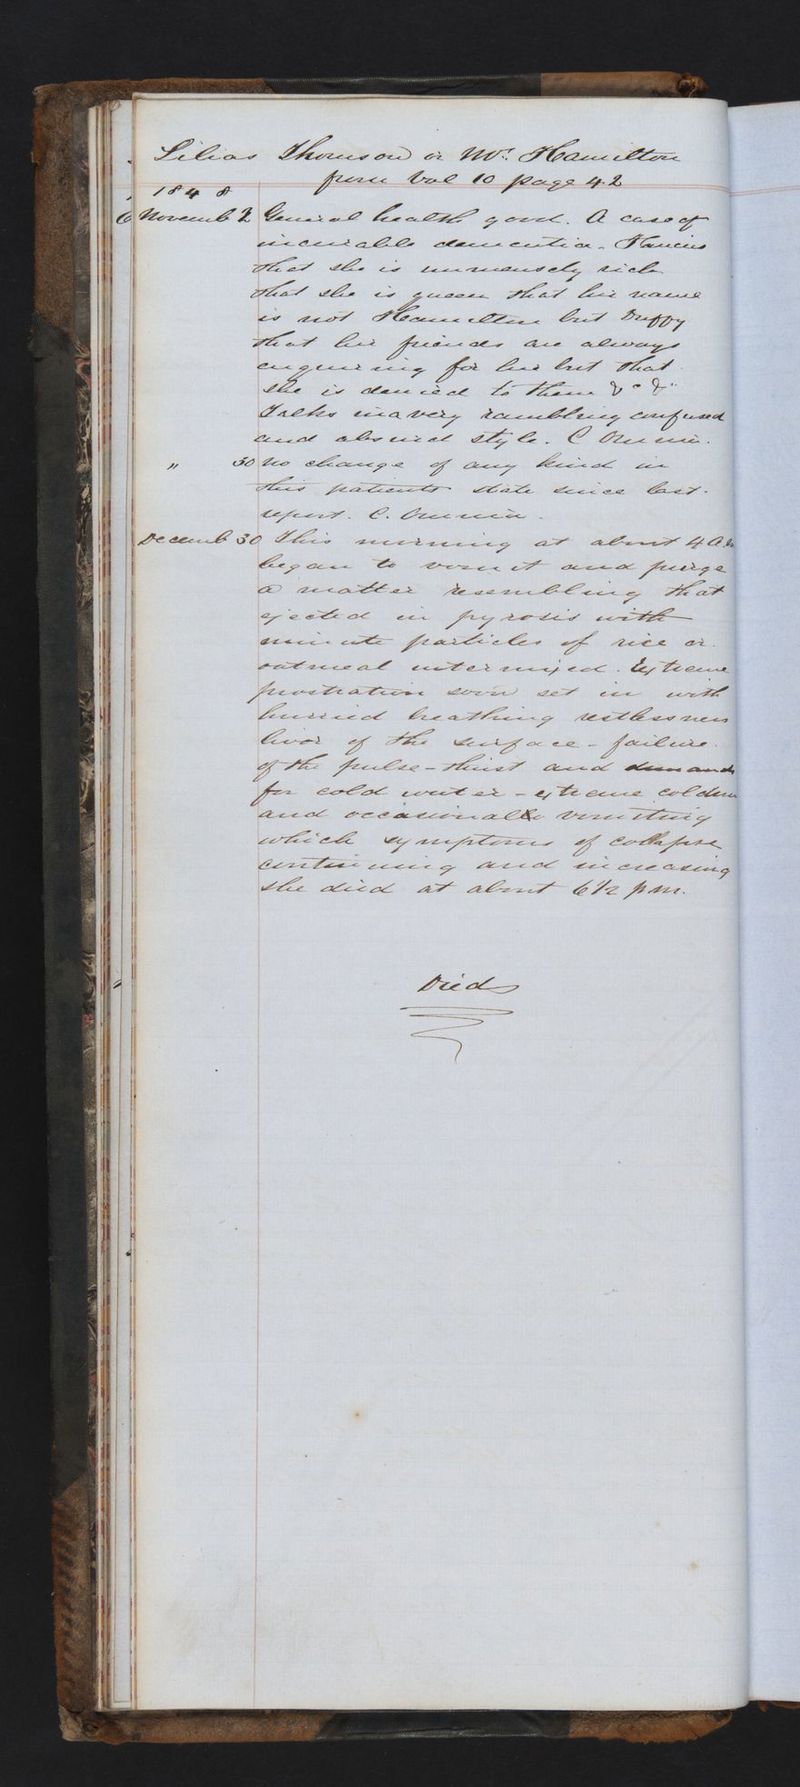 Lilias Thomson or Mrs. Hamilton
from Vol 10 page 42
1848
Novemb 2 General health good. A case of
incurable dementia. Fancies
that she is immensely rich
that she is queen that her name
is not Hamilton but Duffy
that her friends are always
enquiring for her but that
she is denied to them &c &c
Talks in a very rambling confused
and absurd style. C
" 30 No change of any kind in
this patients state since last
report. C.
Decemb 30 This morning at about 4 A.m
began to vomit and purge
a matter resembling that
ejected in pyrosis with
minute particles of rice or
oatmeal intermixed. Extreme
prostration soon set in with
hurried breathing restlessness
livor of the surface - failure
of the pulse - thirst and demands
for cold water - extreme coldness
and occasional vomiting
which symptoms of collapse
continuing and increasing
she died at about 6 1/2 p.m.
Died